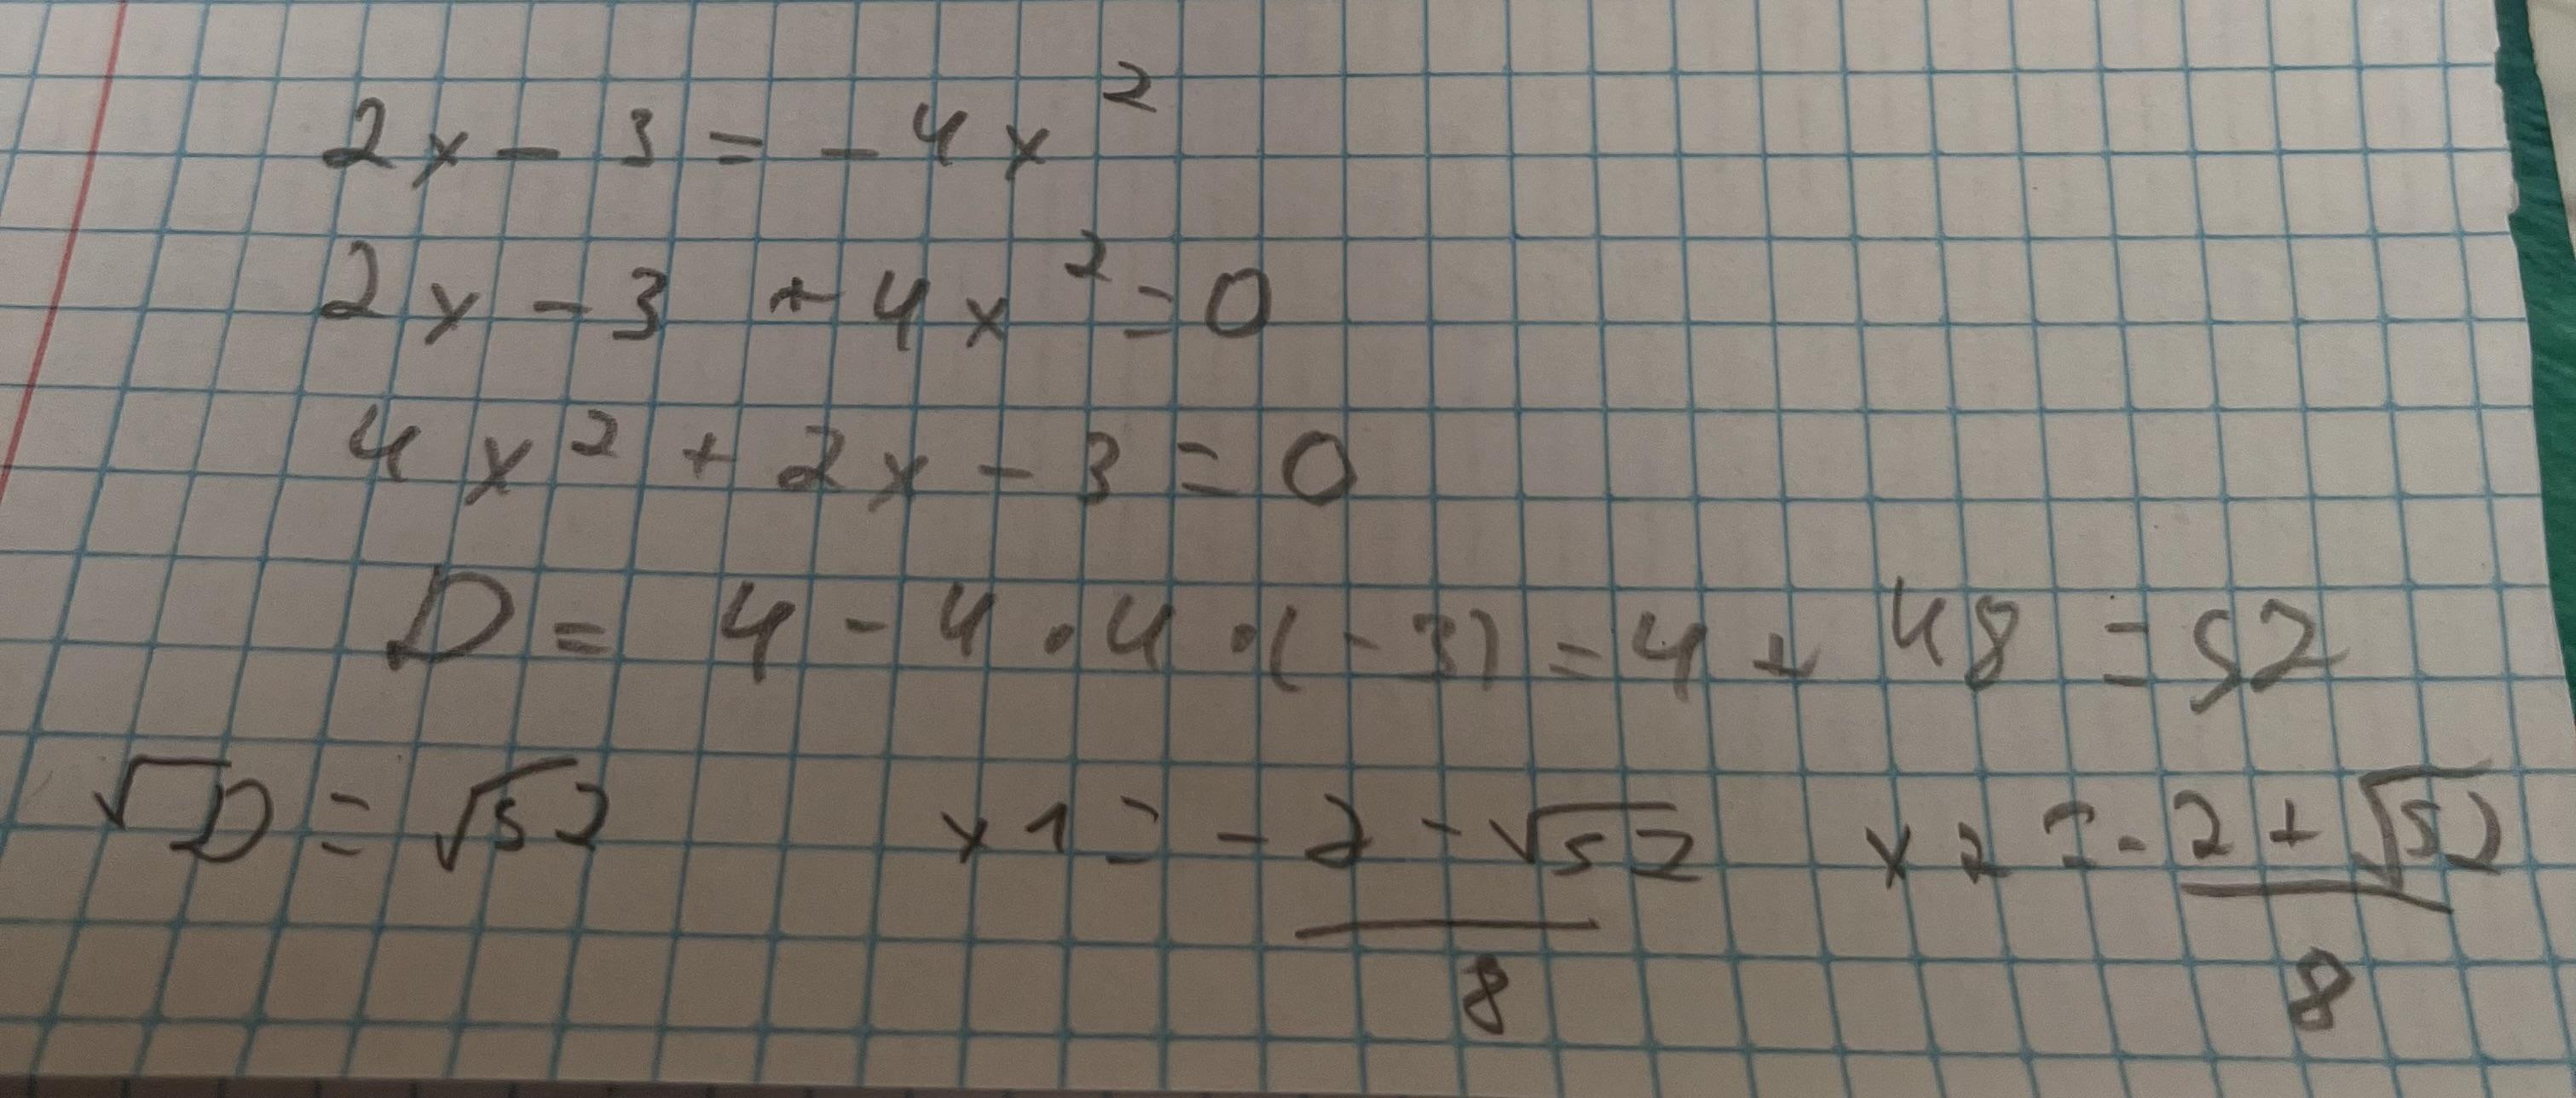 2x - 3 = -4x²
2x - 3 + 4x² = 0
4x² + 2x - 3 = 0
D = 4 - 4 · 4 · (-3) = 4 + 48 = 52
√D = √52 x1 = -2 - √52 / 8 x2 = -2 + √52 / 8